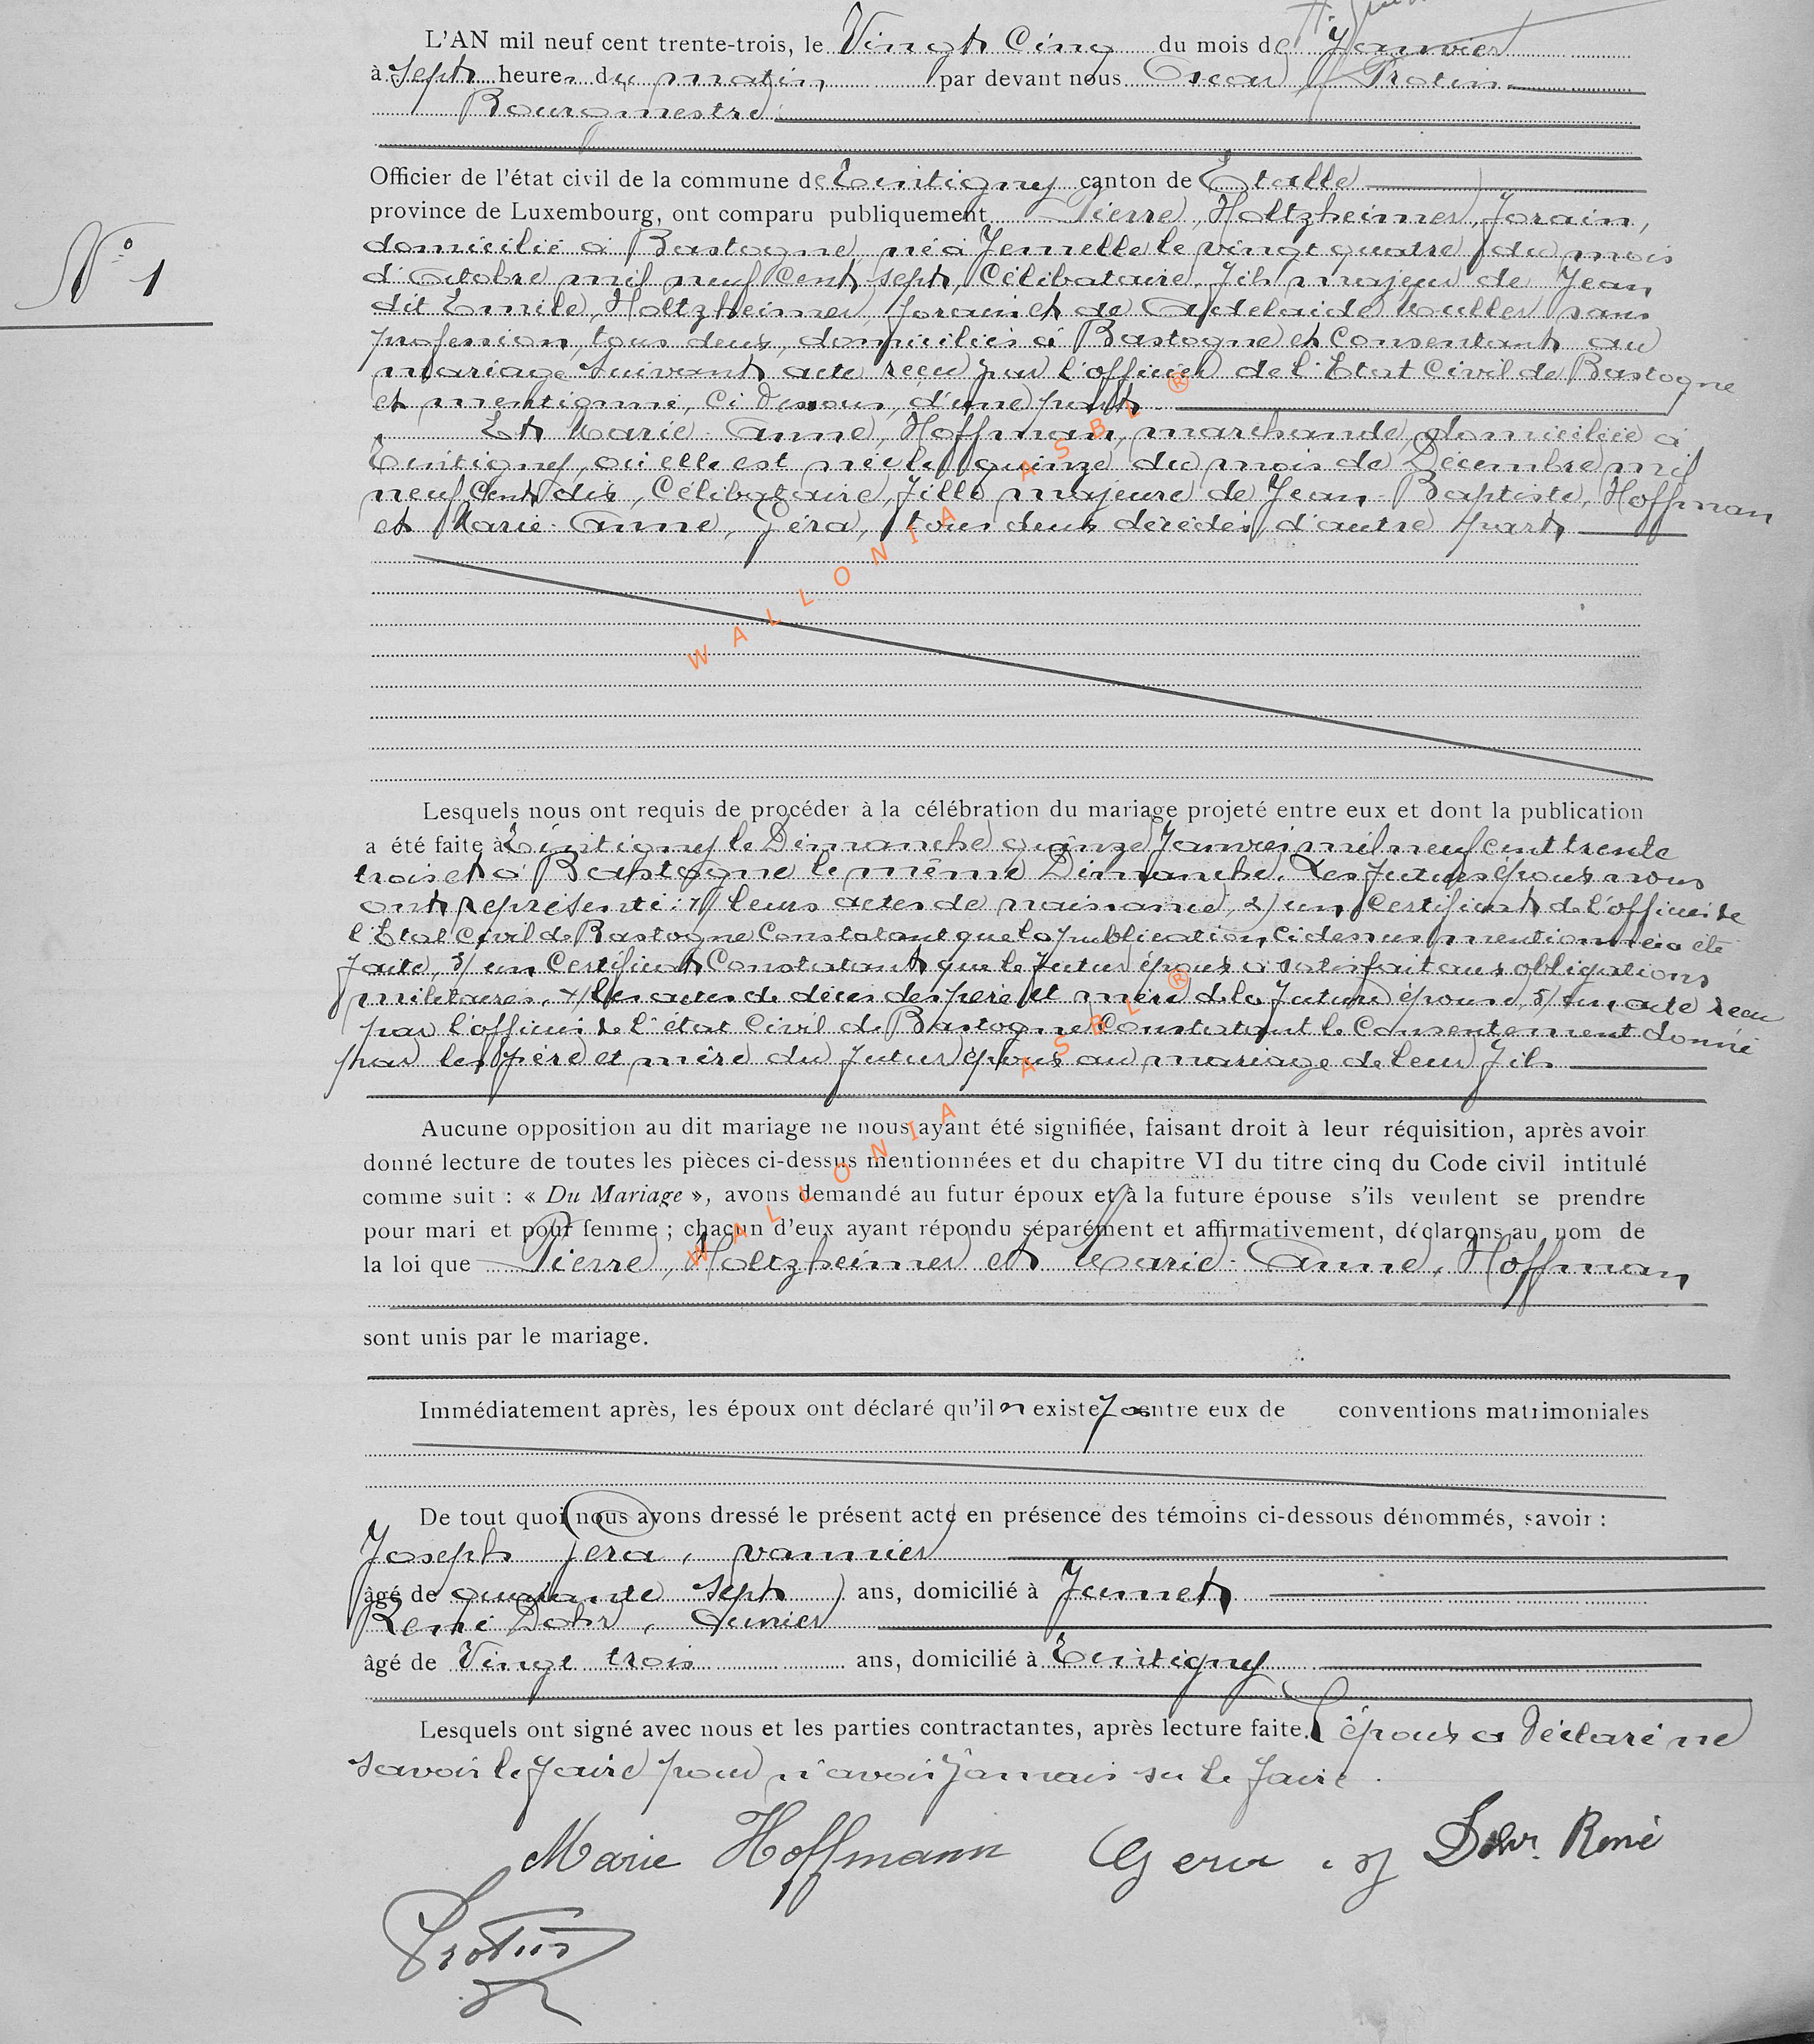 L'AN mil neuf cent trente-trois, le Vingt Cinq du mois de Janvier
à sept heures du matin par devant nous Oscar Protin
Bourgmestre
Officier de l'état civil de la commune de Tintigny canton de Etalle
province de Luxembourg, ont comparu publiquement Pierre, Holtzheimer, forain,
N° 1
domicilié à Bastogne, né à Jemelle le vingt quatre du mois
d'Octobre mil neuf cent sept, Célibataire, fils majeur de Jean
dit Emile, Holtzheimer, forain et de Adelaïde sans
profession, tous deux, domiciliés à Bastogne et consentant au
mariage suivant acte reçu par l'officier de l'Etat Civil de Bastogne
et mentionné, ci dessous, d'une part
Et Marie-Anne, Hoffman, marchande, domiciliée à
Tintigny, où elle est née le quinze du mois de Décembre mil
neuf cent dix, Célibataire, fille majeure de Jean-Baptiste, Hoffman
et Marie-Anne, Géra, tous deux décédés, d'autre part
Lesquels nous ont requis de procéder à la célébration du mariage projeté entre eux et dont la publication
a été faite à Tintigny le Dimanche quinze Janvier mil neuf cent trente
trois et à Bastogne le même Dimanche. Les futurs époux nous
ont représenté: 1/ leurs actes de naissance, 2/ un Certificat de l'officier de
l'Etat Civil de Bastogne Constatant que la publication ci dessus mentionnée a été
faite, 3/ un Certificat Constatant que le futur époux a satisfait aux obligations
militaires, 4/ les actes de décès des père et mère de la future épouse, 5/ un acte reçu
par l'officier de l'état Civil de Bastogne Constatant le Consentement donné
par les père et mère du futur époux au mariage de leur fils
Aucune opposition au dit mariage ne nous ayant été signifiée, faisant droit à leur réquisition, après avoir
donné lecture de toutes les pièces ci-dessus mentionnées et du chapitre VI du titre cinq du Code civil intitulé
comme suit : « Du Mariage », avons demandé au futur époux et à la future épouse s'ils veulent se prendre
pour mari et pour femme ; chacun d'eux ayant répondu séparément et affirmativement, déclarons au nom de
la loi que Pierre, Holtzheimer et Marie-Anne, Hoffman
sont unis par le mariage.
Immédiatement après, les époux ont déclaré qu'il n existe pas entre eux de conventions matrimoniales
De tout quoi nous avons dressé le présent acte en présence des témoins ci-dessous dénommés, savoir :
Joseph Jera, vannier
âgé de quarante sept ans, domicilié à Jumet
René Dohr,
âgé de Vingt trois ans, domicilié à Tintigny
Lesquels ont signé avec nous et les parties contractantes, après lecture faite. L'époux a déclaré ne
savoir le faire pour n'avoir jamais su le faire.
Marie Hoffmann Gera . J Dohr. René
Protin
WALLONIA ASBL ®
WALLONIA ASBL ®